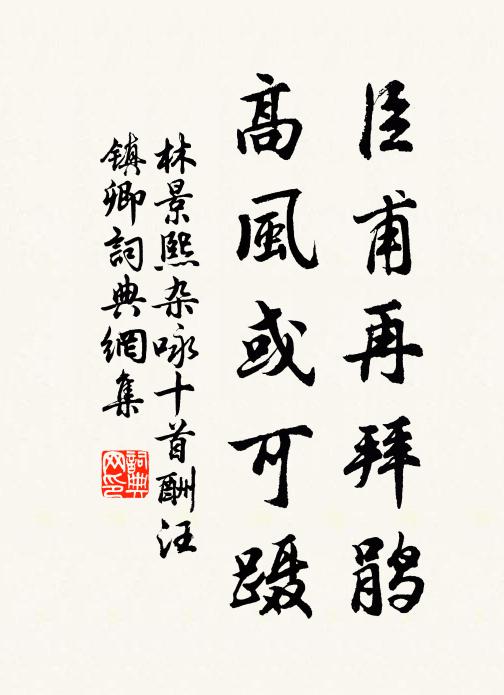 臣甫再拜鹃
高風或可蹑
林景熙杂咏十首酬汪
鎮卿詞典網集
詞典网印